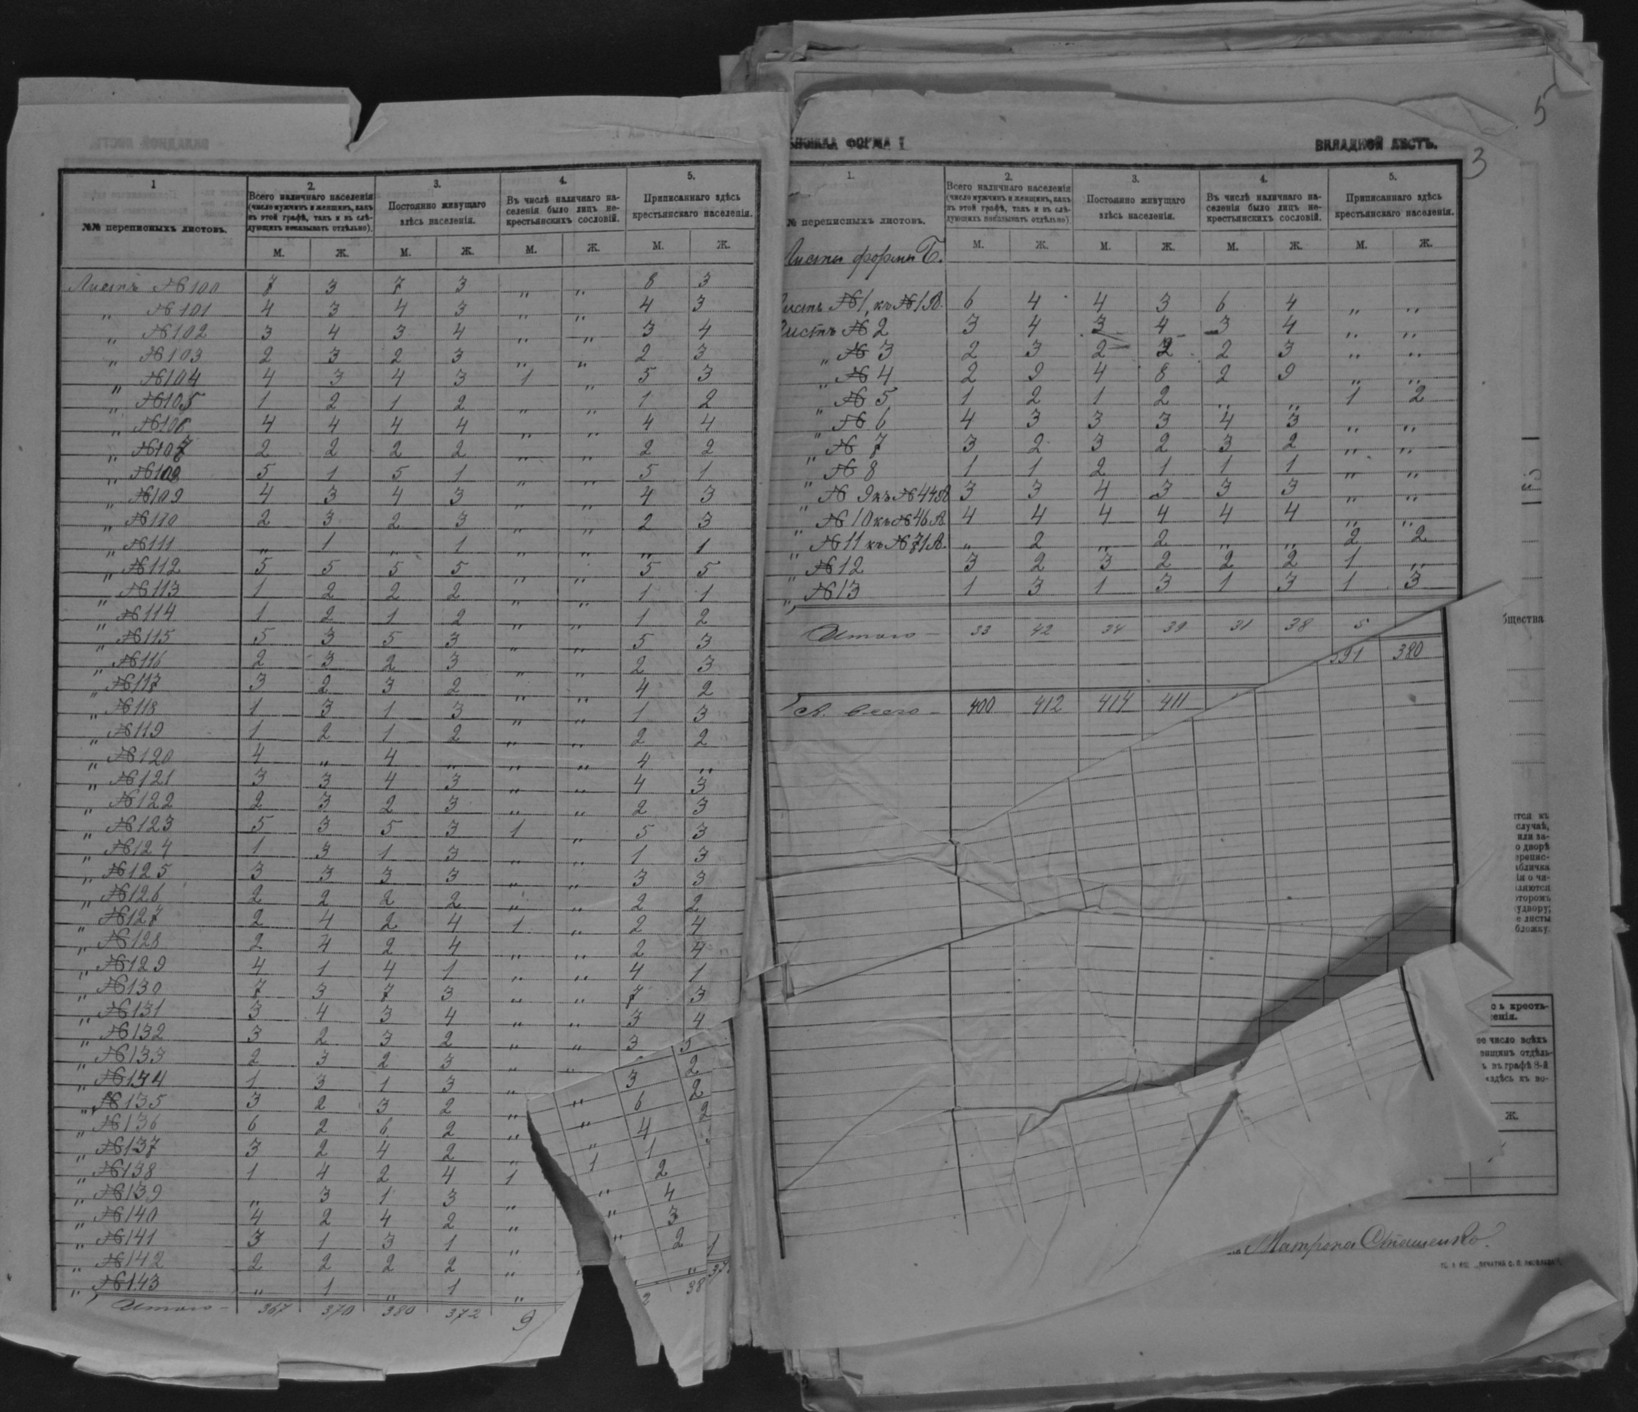 1
2.
3.
4.
5.
№№ переписныхъ листовъ.
Всего наличнаго населенія (число мужчинъ и женщинъ, какъ въ этой графѣ, такъ и въ слѣдующихъ показывать отдѣльно).
Постоянно живущаго здѣсь населенія.
Въ числѣ наличнаго населенія было лицъ некрестьянскихъ сословій.
Приписаннаго здѣсь крестьянскаго населенія.
М. Ж. М. Ж. М. Ж. М. Ж.
Листъ №100 7 3 7 3 „ „ 8 3
„ №101 4 3 4 3 „ „ 4 3
„ №102 3 4 3 4 „ „ 3 4
„ №103 2 3 2 3 „ „ 2 3
„ №104 4 3 4 3 1 „ 5 3
„ №105 1 2 1 2 „ „ 1 2
„ №106 4 4 4 4 „ „ 4 4
„ №107 2 2 2 2 „ „ 2 2
„ №108 5 1 5 1 „ „ 5 1
„ №109 4 3 4 3 „ „ 4 3
„ №110 2 3 2 3 „ „ 2 3
„ №111 „ 1 „ 1 „ „ „ 1
„ №112 5 5 5 5 „ „ 5 5
„ №113 1 2 2 2 „ „ 1 1
„ №114 1 2 1 2 „ „ 1 2
„ №115 5 3 5 3 „ „ 5 3
„ №116 2 3 2 3 „ „ 2 3
„ №117 3 2 3 2 „ „ 4 2
„ №118 1 3 1 3 „ „ 1 3
„ №119 1 2 1 2 „ „ 2 2
„ №120 4 „ 4 „ „ „ 4 „
„ №121 3 3 4 3 „ „ 4 3
„ №122 2 3 2 3 „ „ 2 3
„ №123 5 3 5 3 1 „ 5 3
„ №124 1 3 1 3 „ „ 1 3
„ №125 3 3 3 3 „ „ 3 3
„ №126 2 2 2 2 „ „ 2 2
„ №127 2 4 2 4 1 „ 2 4
„ №128 2 4 2 4 „ „ 2 4
„ №129 4 1 4 1 „ „ 4 1
„ №130 7 3 7 3 „ „ 7 3
„ №131 3 4 3 4 „ „ 3 4
„ №132 3 2 3 2 „ „ 3
„ №133 2 3 2 3 „ „
„ №134 1 3 1 3 „
„ №135 3 2 3 2 „
„ №136 6 2 6 2 „
„ №137 3 2 4 2 „
„ №138 1 4 2 4 1
„ №139 „ 3 1 3 „
„ №140 4 2 4 2 „
„ №141 3 1 3 1 „
„ №142 2 2 2 2 „
„ №143 „ 1 „ 1 „
Итого – 367 370 380 372 9
5
3
ФОРМА 1
ВКЛАДНОЙ ЛИСТЪ.
1.
2.
3.
4.
5.
№ переписныхъ листовъ.
Всего наличнаго населенія (число мужчинъ и женщинъ, какъ въ этой графѣ, такъ и въ слѣдующихъ показывать отдѣльно).
Постоянно живущаго здѣсь населенія.
Въ числѣ наличнаго населенія было лицъ некрестьянскихъ сословій.
Приписаннаго здѣсь крестьянскаго населенія.
М. Ж. М. Ж. М. Ж. М. Ж.
Листы формы Б.
Листъ №1, къ №1А. 6 4 4 3 6 4 „ „
Листъ №2 3 4 3 4 3 4 „ „
„ №3 2 3 2 2 2 3 „ „
„ №4 2 9 4 8 2 9 „ „
„ №5 1 2 1 2 „ „ 1 2
„ №6 4 3 3 3 4 3 „ „
„ №7 3 2 3 2 3 2 „ „
„ №8 1 1 2 1 1 1 „ „
„ №9 къ №44А 3 3 4 3 3 3 „ „
„ №10 къ №46А. 4 4 4 4 4 4 „ „
„ №11 къ №71А. „ 2 „ 2 „ „ 2 2
„ №12 3 2 3 2 2 2 1 „
„ №13 1 3 1 3 1 3 1 3
Итого – 33 42 34 39 31 38 5
391 380
А всего – 400 412 414 411
общества
случаѣ,
дворѣ
Ж.
Матрона Сташенко.